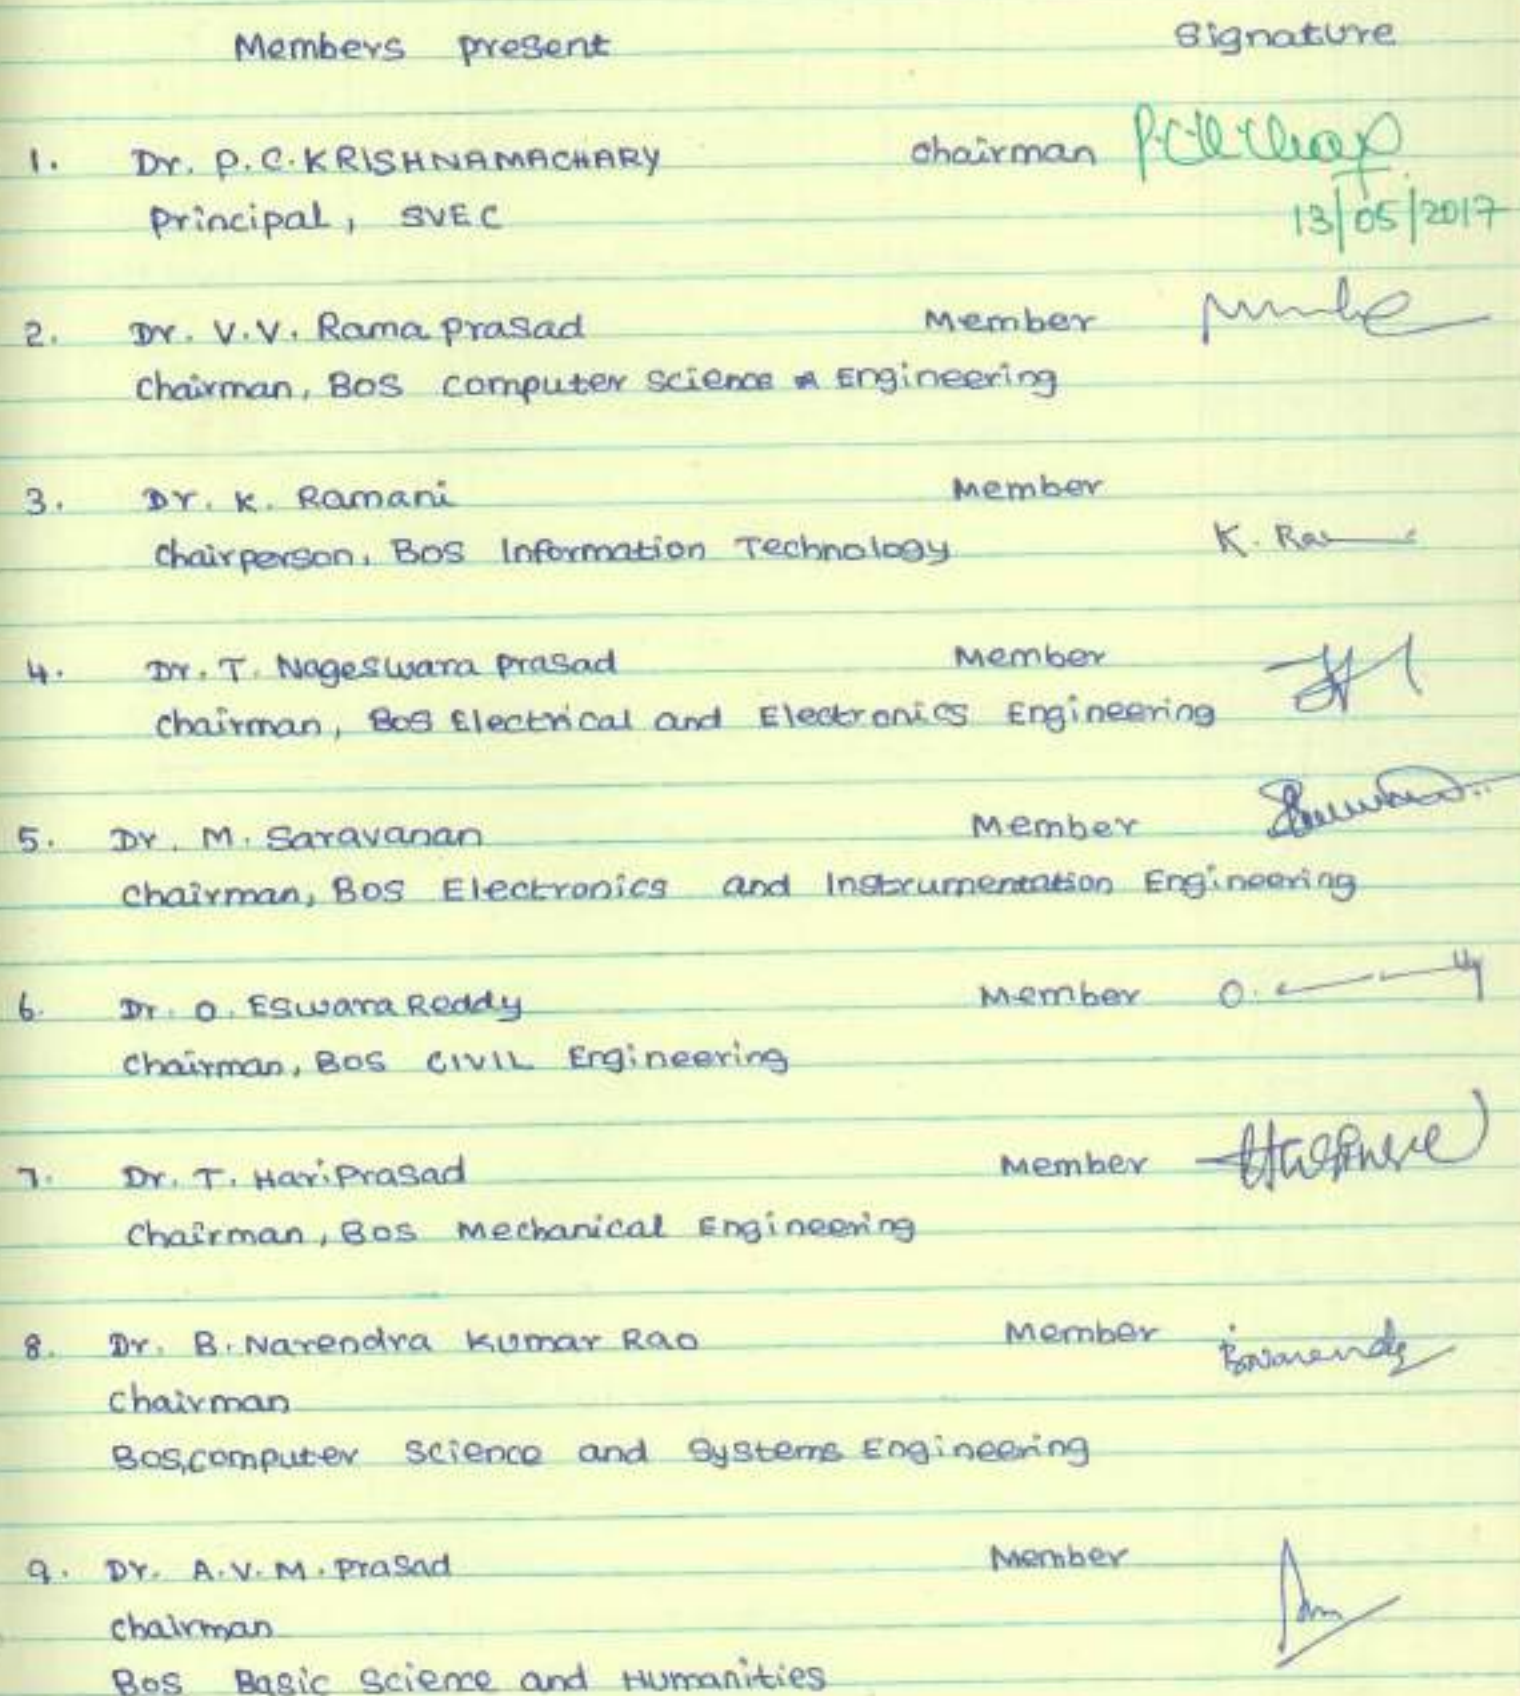 Members present Signature
1. Dr. P.C. KRISHNAMACHARY chairman
13/05/2017
Principal, SVEC
2. Dr. V.V. Rama prasad Member
Chairman, BOS computer science & Engineering
3. Dr. K. Ramani Member
Chairperson, BOS Information Technology K. Ra
4. Dr. T. Nageswara prasad Member
Chairman, BOS Electrical and Electronics Engineering
5. Dr. M. Saravanan Member
Chairman, BOS Electronics and Instrumentation Engineering
6. Dr. O. Eswara Reddy Member O.
Chairman, BOS CIVIL Engineering
7. Dr. T. Hari Prasad Member
Chairman, BOS Mechanical Engineering
8. Dr. B. Narendra Kumar Rao Member
Chairman
BOS, computer Science and Systems Engineering
9. Dr. A.V.M. Prasad Member
Chairman
BOS Basic Science and Humanities